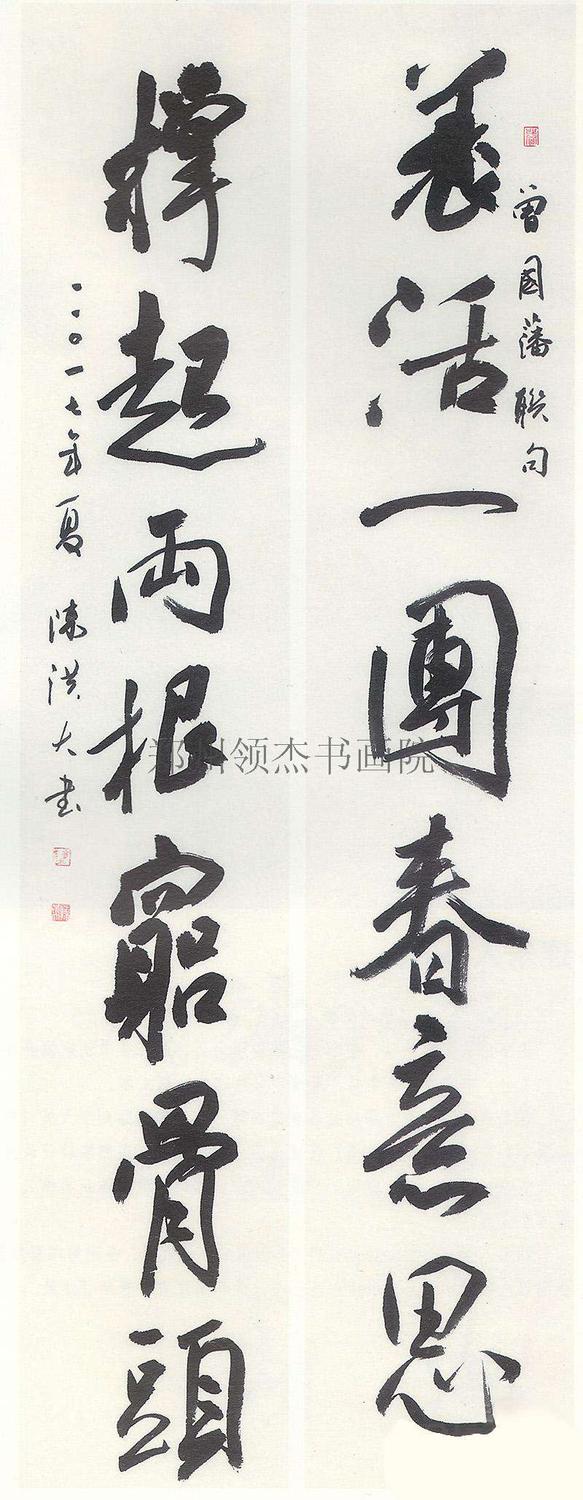 曾國藩聯句
養活一團春意思
撐起兩根竆骨頭
二〇一七年夏 陳洪大書
郑州领杰书画院